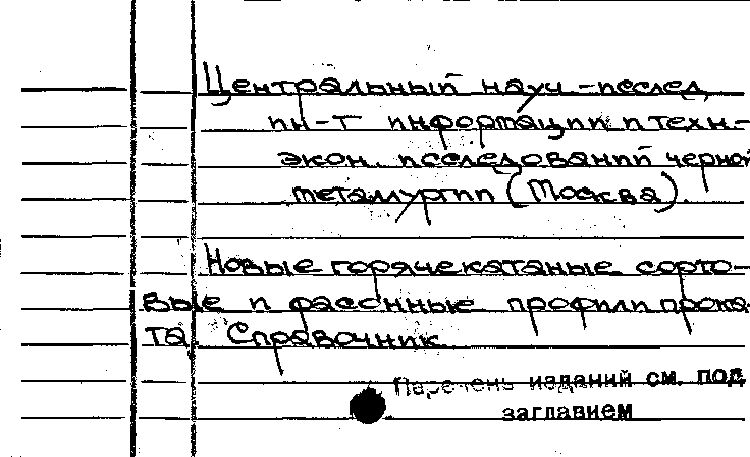 Центральный науч-исслед.
ин-т информации и техн-
экон. исследований черной
металлургии (Москва).
Новые горячекатаные сорто-
вые и фасонные профили прока-
та. Справочник.
Перечень изданий см. под
заглавием